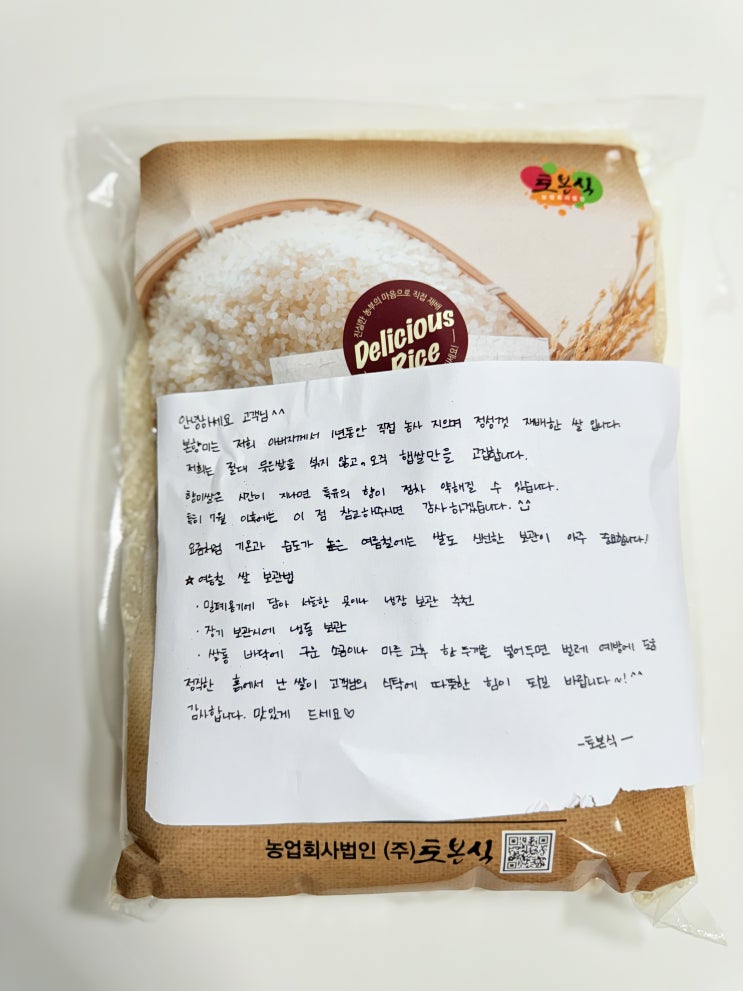 토본식
농업회사법인
진실한 농부의 마음으로 직접 재배
Delicious
Rice
안녕하세요 고객님^^
본향미는 저희 아버지께서 1년동안 직접 농사 지으며 정성껏 재배한 쌀 입니다.
저희는 절대 묵은쌀을 섞지 않고, 오직 햅쌀만을 고집합니다.
향미쌀은 시간이 지나면 특유의 향이 점차 약해질 수 있습니다.
특히 7월 이후에는 이 점 참고해주시면 감사하겠습니다. ^^
요즘처럼 기온과 습도가 높은 여름철에는 쌀도 신선한 보관이 아주 중요합니다!
☆여름철 쌀 보관법
· 밀폐용기에 담아 서늘한 곳이나 냉장 보관 추천
· 장기 보관시에 냉동 보관
· 쌀통 바닥에 구운 소금이나 마른 고추 한 두개를 넣어두면 벌레 예방에 도움
정직한 흙에서 난 쌀이 고객님의 식탁에 따뜻한 힘이 되길 바랍니다~!^^
감사합니다. 맛있게 드세요♡
-토본식-
농업회사법인 (주)토본식